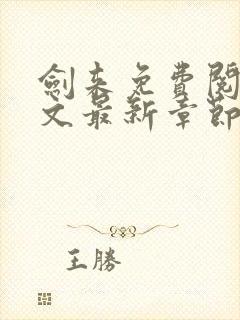 劍來免費閱
文最新章節
王勝